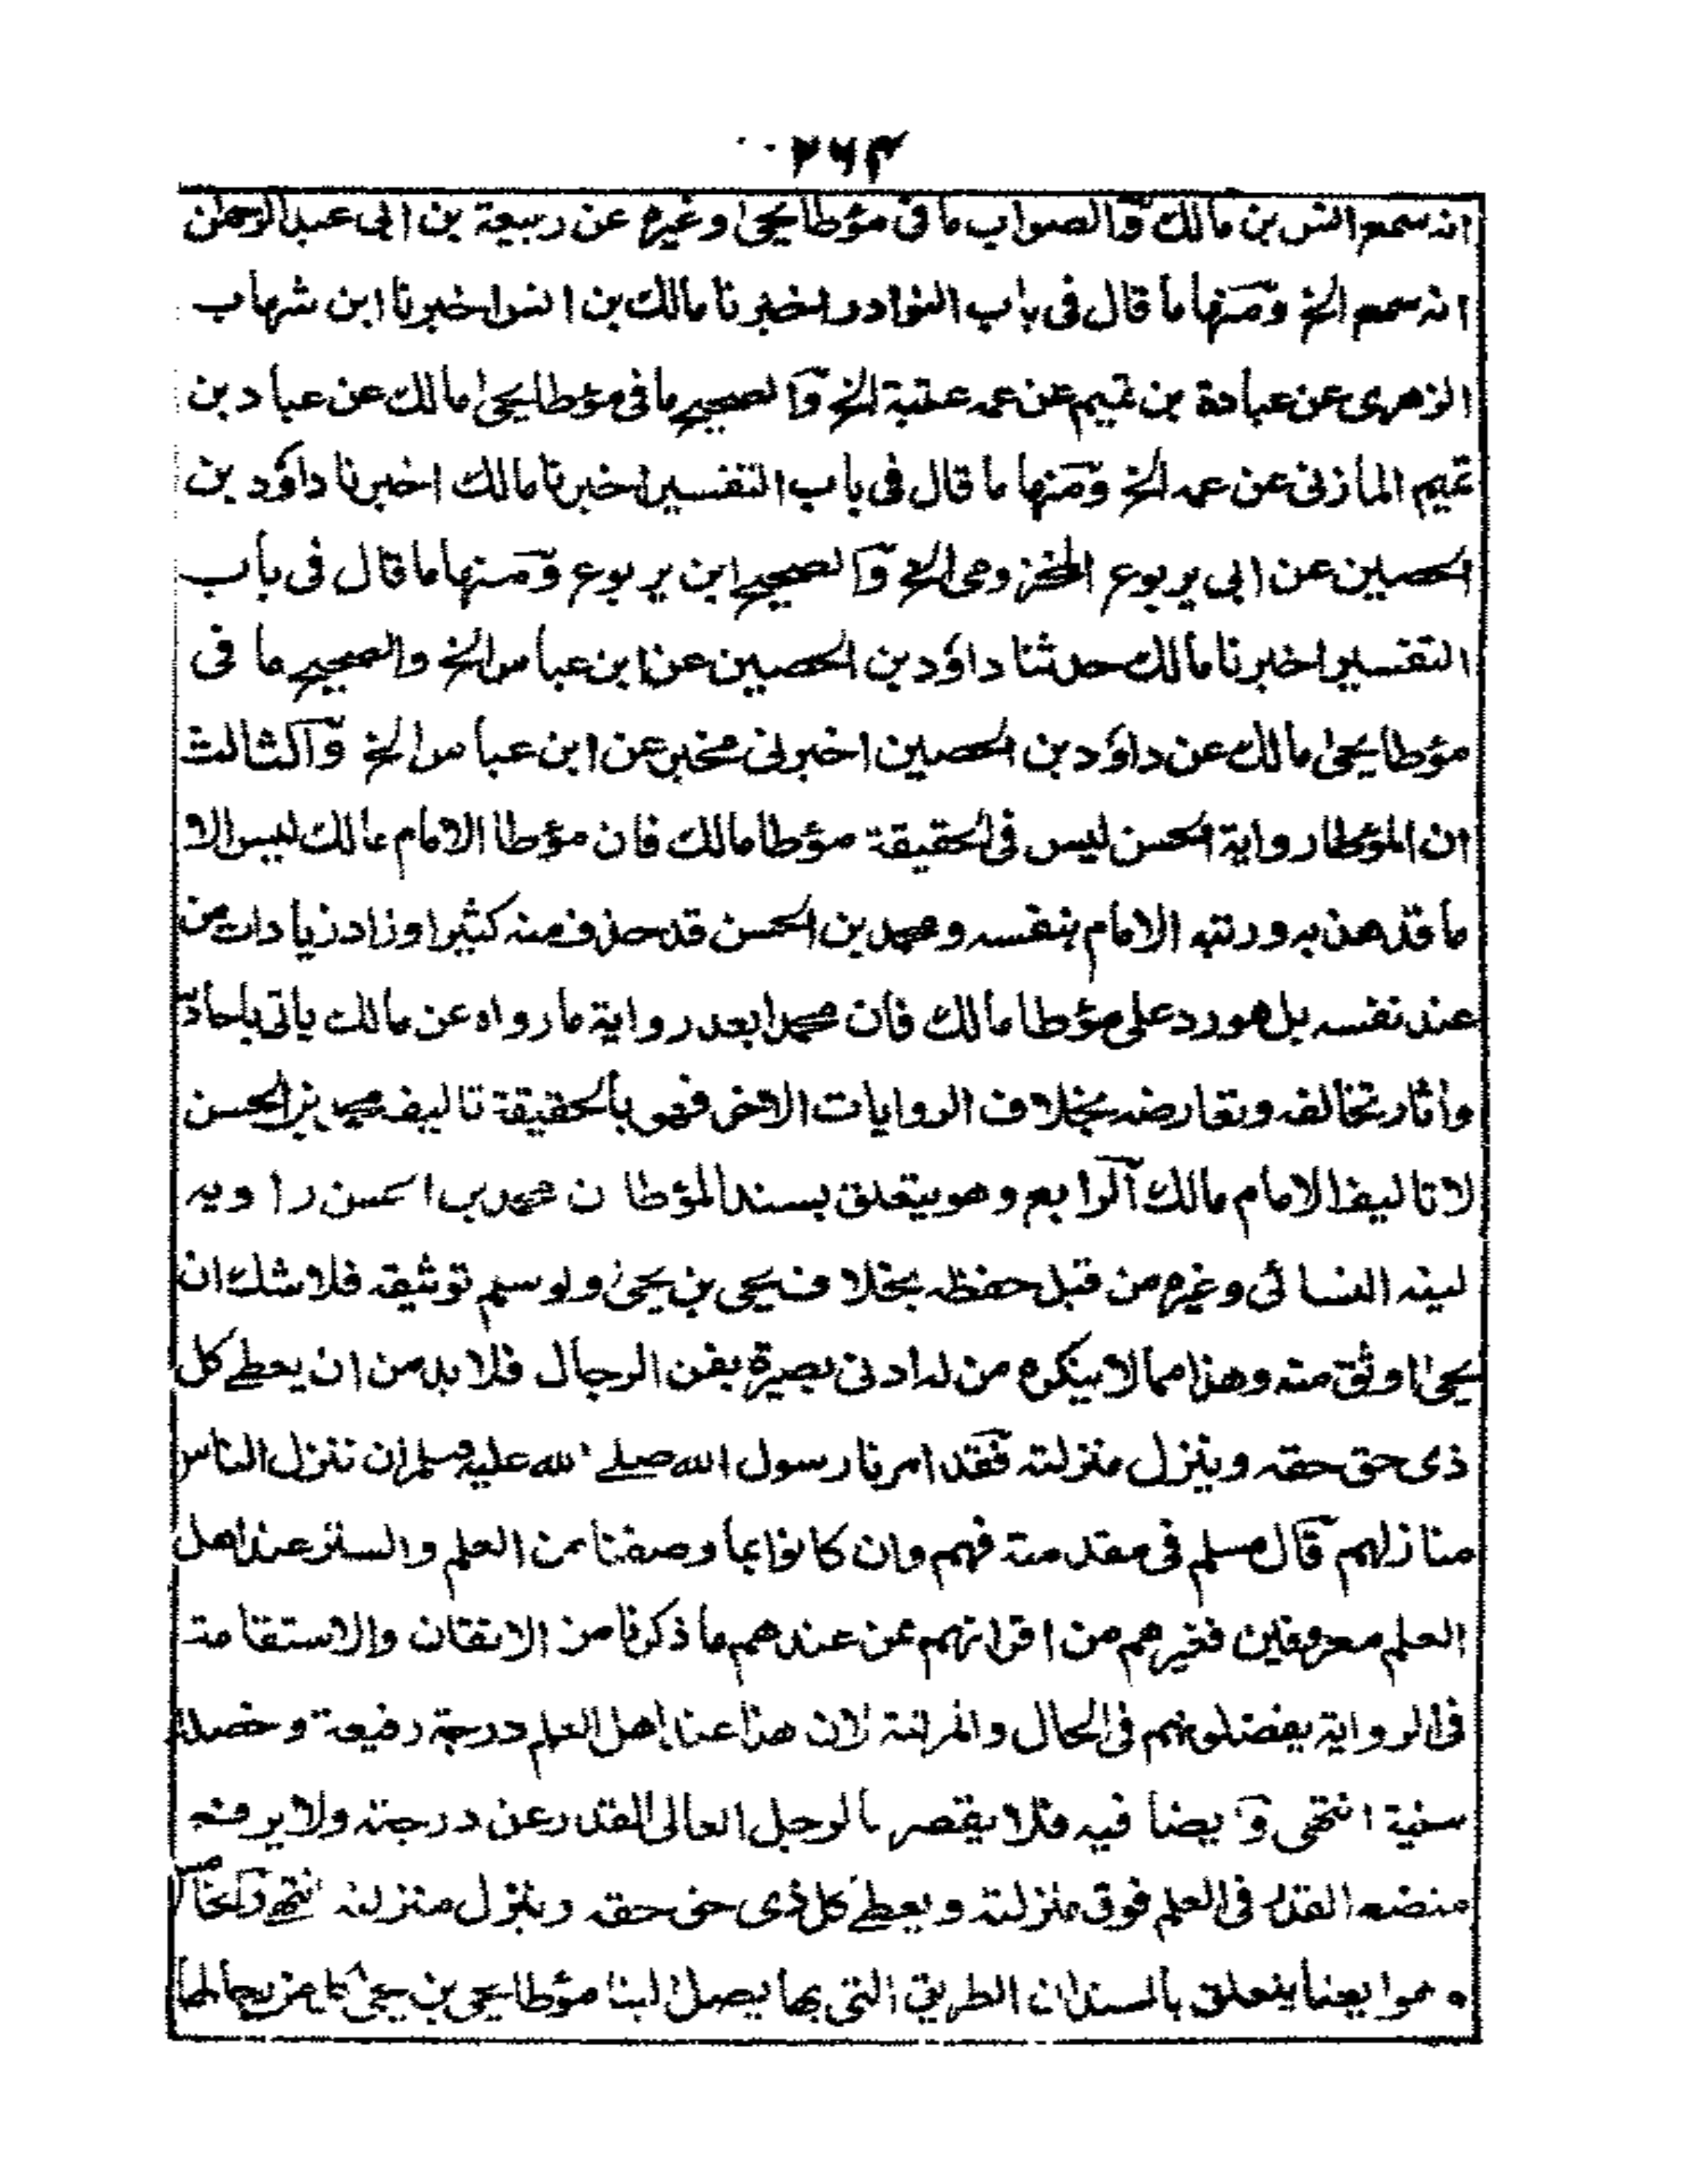 ۲۶۴
انه سمع انس بن مالك والصواب ما فى مؤطا يحيىٰ وغيره عن ربيعة بن ابى عبد الرحمن
انه سمع الخ ومنها ما قال فى باب النوادر اخبرنا مالك بن انس اخبرنا ابن شهاب
الزهرى عن عبادة بن تميم عن عمه عتبة الخ والصحيح ما فى مؤطا يحيىٰ مالك عن عباد بن
تميم المازنى عن عمه الخ ومنها ما قال فى باب التفسير اخبرنا مالك اخبرنا داؤد بن
الحصين عن ابى يربوع المخزومى الخ والصحيح ابن يربوع ومنها ما قال فى باب
التفسير اخبرنا مالك حدثنا داؤد بن الحصين عن ابن عباس الخ والصحيح ما فى
مؤطا يحيىٰ مالك عن داؤد بن الحصين اخبرنى مخبر عن ابن عباس الخ والثالث
ان المؤطا رواية الحسن ليس فى الحقيقة مؤطا مالك فان مؤطا الامام مالك ليس الا
ما قد هذبه ورتبه الامام بنفسه ومحمد بن الحسن قد حذف منه كثيرا وزاد زيادات من
عند نفسه بل هو رد على مؤطا مالك فان محمدا بعد رواية ما رواه عن مالك ياتى باحاديث
واثار تخالفه وتعارضه بخلاف الروايات الاخر فهو بالحقيقة تاليف محمد بن الحسن
لا تاليف الامام مالك الرابع وهو يتعلق بسند المؤطا ان محمد بن الحسن راويه
لينه النسائى وغيره من قبل حفظه بخلاف يحيى بن يحيىٰ ولو سهم توثيقه فلا شك ان
يحيىٰ اوثق منه وهذا مما لا ينكره من له ادنى بصيرة بفن الرجال فلا بد من ان يعطے كل
ذى حق حقه وينزل منزلته فقد امرنا رسول الله صلے الله عليه وسلم ان ننزل الناس
منازلهم قال مسلم فى مقدمته فهم وان كانوا بما وصفنا من العلم والستر عند اهل
العلم معروفين فغيرهم من اقرانهم ممن عندهم ما ذكرنا من الاتقان والاستقامة
فى الرواية يفضلونهم فى الحال والمرتبة لان هذا عند اهل العلم درجة رفيعة وخصلة
سنية انتهى وايضا فيه فلا يقصر بالرجل العالى القدر عن درجته ولا يرفع
متضع القدر فى العلم فوق منزلته ويعطے كل ذى حق حقه وينزل منزلته انتهے والخامس
وهو ايضا يتعلق بالسند ان الطريق التى بها يصل الينا مؤطا يحيى بن يحيىٰ رجالها